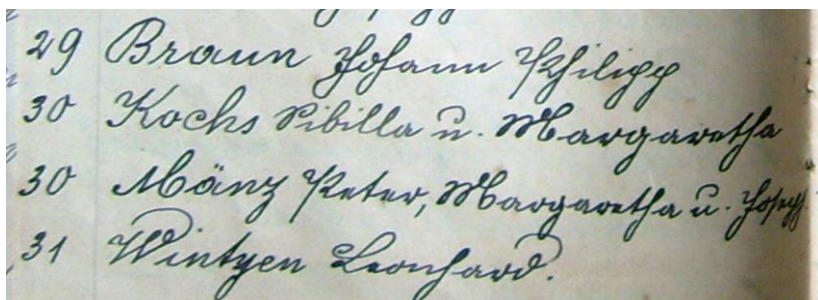 29 Braun Johann Philipp
30 Kochs Sibilla u. Margaretha
30 Mänz Peter, Margaretha u. Joseph
31 Wintzen Leonhard.